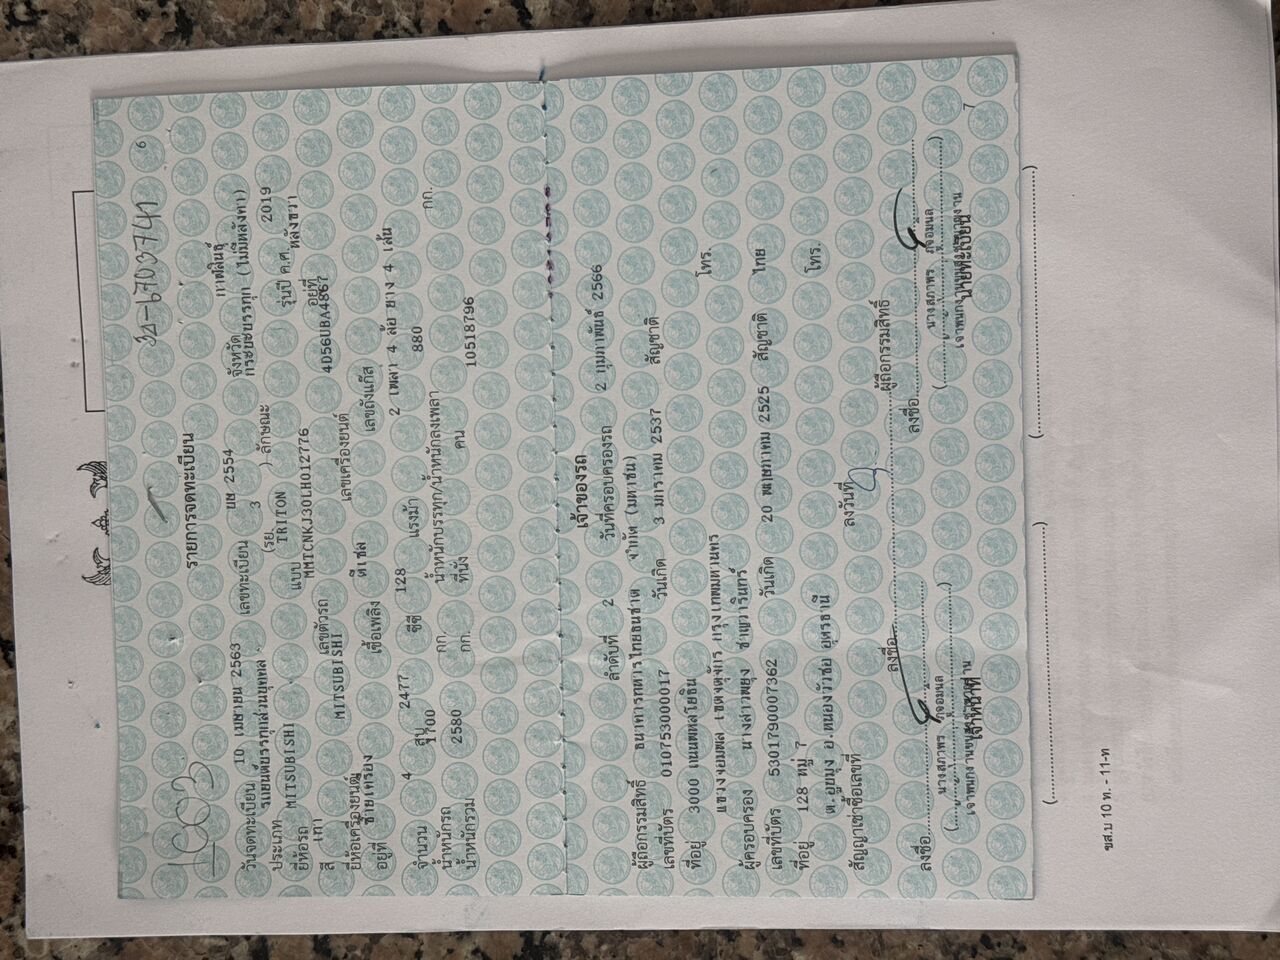 1603
32-6703741
6
รายการจดทะเบียน
วันจดทะเบียน 10 เมษายน 2563 เลขทะเบียน ผษ 2554 จังหวัด กาฬสินธุ์
ประเภท รถยนต์บรรทุกส่วนบุคคล (รย. 3 ) ลักษณะ กระบะบรรทุก (ไม่มีหลังคา)
ยี่ห้อรถ MITSUBISHI แบบ TRITON รุ่นปี ค.ศ. 2019
สี เทา เลขตัวรถ MMTCNKJ30LH012776 อยู่ที่ หลังขวา
ยี่ห้อเครื่องยนต์ MITSUBISHI เลขเครื่องยนต์ 4D56UBA4867
อยู่ที่ ซ้ายเครื่อง เชื้อเพลิง ดีเซล เลขถังแก๊ส
จำนวน 4 สูบ 2477 ซีซี 128 แรงม้า 2 เพลา 4 ล้อ ยาง 4 เส้น
น้ำหนักรถ 1700 กก. น้ำหนักบรรทุก/น้ำหนักลงเพลา 880 กก.
น้ำหนักรวม 2580 กก. ที่นั่ง คน 10518796
เจ้าของรถ
ลำดับที่ 2 วันที่ครอบครองรถ 2 กุมภาพันธ์ 2566
ผู้ถือกรรมสิทธิ์ ธนาคารทหารไทยธนชาต จำกัด (มหาชน)
เลขที่บัตร 0107537000017 วันเกิด 3 มกราคม 2537 สัญชาติ
ที่อยู่ 3000 ถนนพหลโยธิน โทร.
แขวงจอมพล เขตจตุจักร กรุงเทพมหานคร
ผู้ครอบครอง นางสาวพยุง ชาญวารินทร์
เลขที่บัตร 5301790007362 วันเกิด 20 พฤษภาคม 2525 สัญชาติ ไทย
ที่อยู่ 128 หมู่ 7 โทร.
ต.อูบมุง อ.หนองวัวซอ อุดรธานี
สัญญาเช่าซื้อเลขที่ ลงวันที่
ลงชื่อ ผู้ถือกรรมสิทธิ์
ลงชื่อ ลงชื่อ
นางสุภาพร ภูจอมนล นางสุภาพร ภูจอมนล
เจ้าหน้าที่ นายทะเบียน
7
ขส.บ 10 ท. - 11-ท